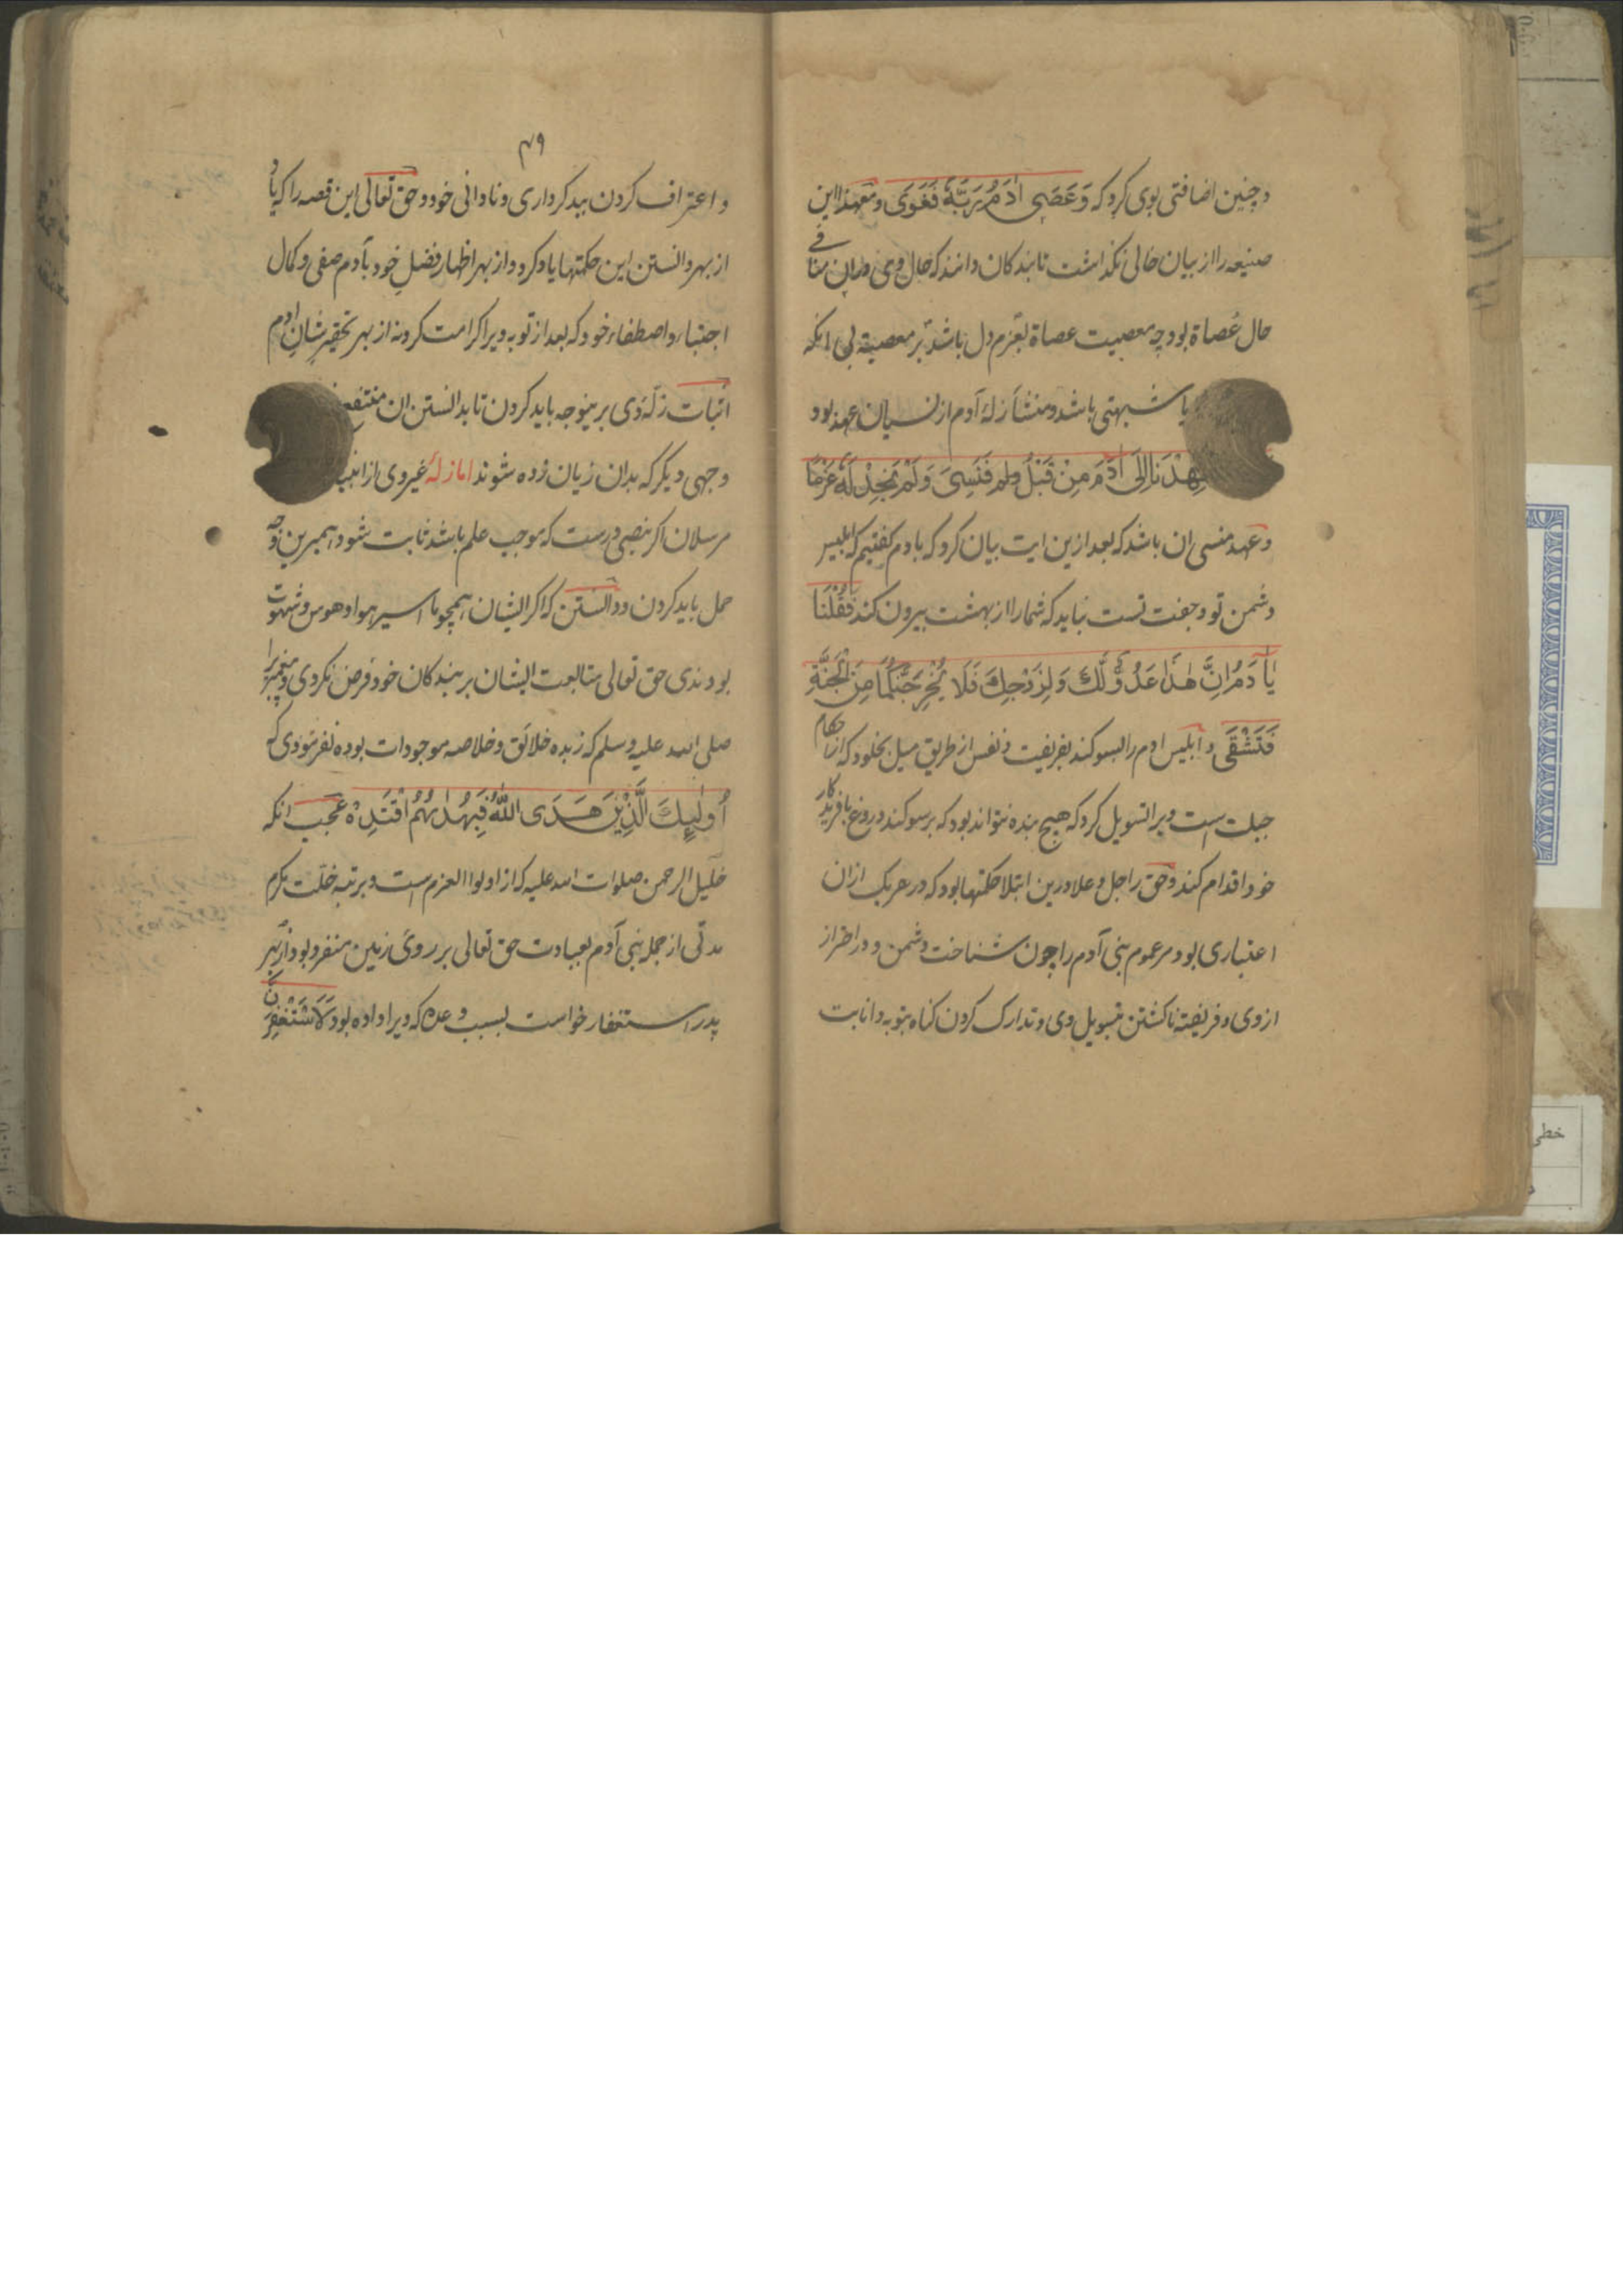 و چنین اضافتی بوی کرد که وَعَصَی اٰدَمُ رَبَّهٗ فَغَوَی و معهذا این
صنیعه را از بیان خالی نکذاشت تا بندکان دانند که حال وی دران منافی
حال عُصاة بود چه معصیت عصاة بعزم دل باشد بر معصیة بی انکه
یا شبهتی باشد و منشأ زلهٔ آدم از نسیان عهد بود
عَهِدْنَا اِلَی اٰدَمَ مِنْ قَبْلُ فَنَسِیَ وَلَمْ نَجِدْ لَهٗ عَزْمًا
و عهد منسی ان باشد که بعد ازین ایت بیان کرد که بادم کفتیم که ابلیس
دشمن تو و جفت تست نباید که شما را از بهشت بیرون کند فَقُلْنَا
یَآ اٰدَمُ اِنَّ هٰذَا عَدُوٌّ لَّكَ وَلِزَوْجِكَ فَلَا یُخْرِجَنَّکُمَا مِنَ الْجَنَّةِ
فَتَشْقَی و ابلیس ادم را بسوکند بفریفت و نفس از طریق میل بخلود که از احکام
جبلت است ویرا تسویل کرد که هیچ بنده نتواند بود که بر سوکند دروغ بافریدکار
خود اقدام کند و حق را جل و علا درین ابتلا حکمتها بود که در هریک ازان
اعتباری بود مر عموم بنی آدم را چون شناخت دشمن و در احتراز
از وی و فریفته ناکشتن بتسویل وی و تدارک کردن کناه بتوبه و انابت
۴۹
و اعتراف کردن ببد کرداری و نادانی خود و حق تعالی این قصه را که یاد
از بهر دانستن این حکمتها یاد کرد و از بهر اظهار فضل خود بآدم صفی و کمال
اجتباء و اصطفاء خود که بعد از توبه ویرا کرامت کرد نه از بهر تحقیر شان ادم
اثبات زلّهٔ وی برینوجه باید کردن تا بدانستن ان منتفع
وجهی دیکر که بدان زیان زده شوند اما زلهٔ غیر وی از انبیا
مرسلان اکر بنصی درست که موجب علم باشد ثابت شود هم برین وجه
حمل باید کردن و دانستن که اکر ایشان همچو ما اسیر هوا و هوس و شهوت
بودندی حق تعالی متابعت ایشان بر بندکان خود فرض نکردی و پیغمبر را
صلی الله علیه وسلم که زبده خلائق و خلاصه موجودات بوده نفرمودی که
اُولٰٓئِكَ الَّذِیْنَ هَدَی اللّٰهُ فَبِهُدٰىهُمُ اقْتَدِهْ عجب انکه
خلیل الرحمن صلوات الله علیه که از اولوا العزم است و برتبه خلّت مکرم
مدتی از جمله بنی آدم بعبادت حق تعالی بر روی زمین منفرد بود از بهر
پدر استغفار خواست بسبب وعده که ویرا داده بود لَاَسْتَغْفِرَنَّ
خطی